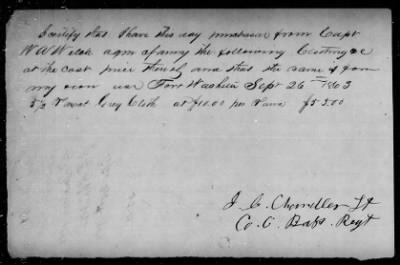 I certify that I have this day purchased from Capt
W A Welch aqm of army the following Clothing &c
at the cost price thereof and that the same is from
my own use Fort Washita Sept 26th 1863
5½ Yards Grey Cloth at $10.00 per Yard $55.00
J. C. Chandler Lt
Co. C. Bats. Regt